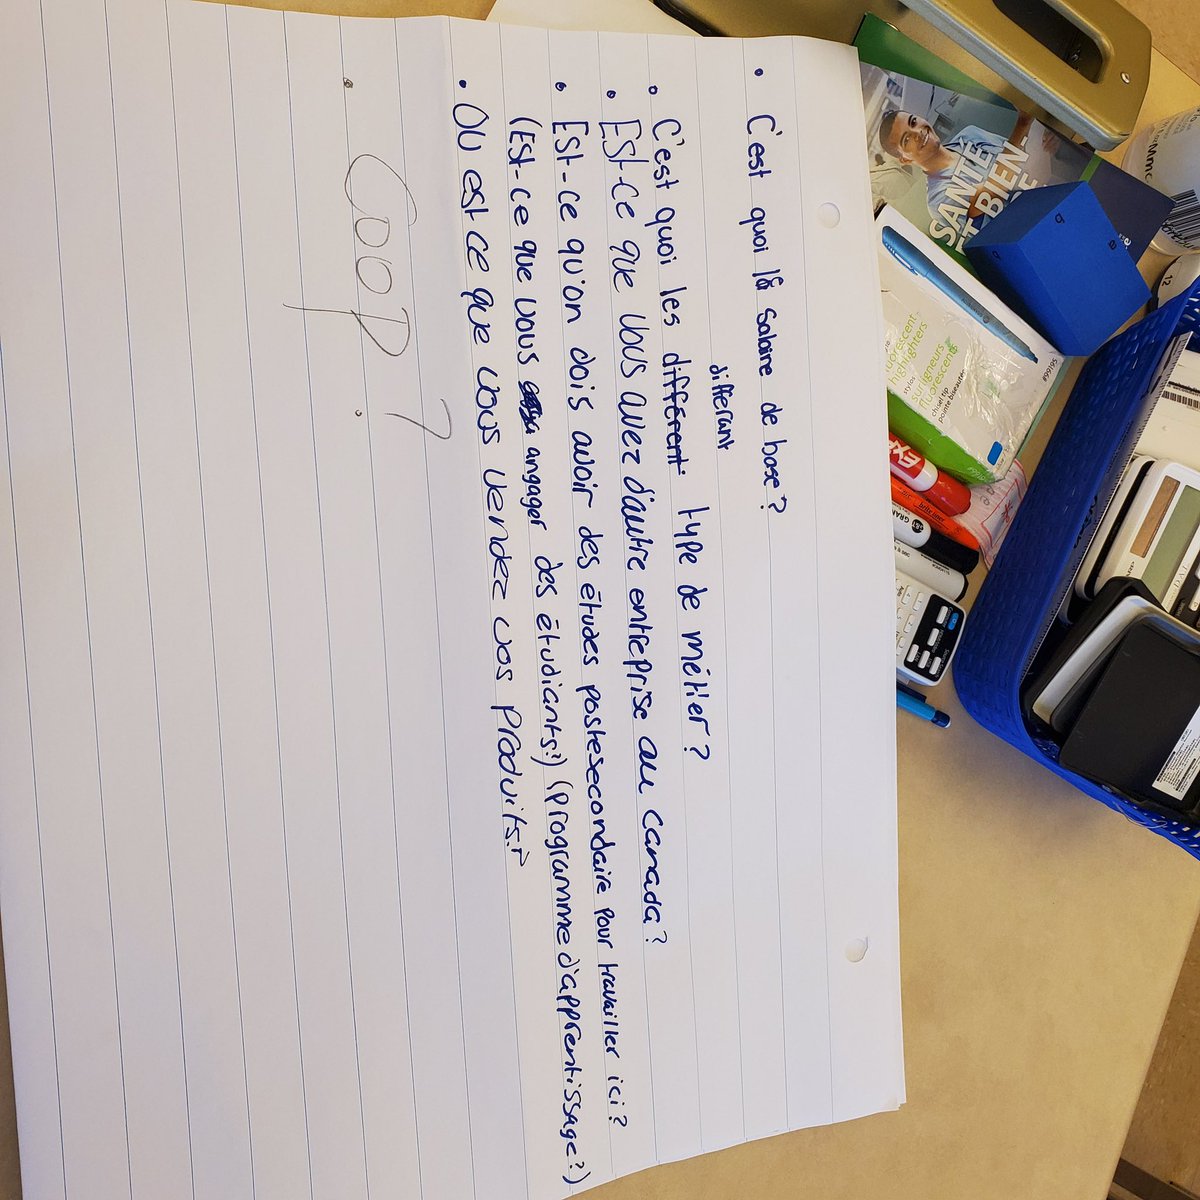 • C'est quoi le salaire de base?
differant
• C'est quoi les différent type de métier?
• Est-ce que vous avez d'autre entreprise au canada?
• Est-ce qu'on dois avoir des études postesecondaire pour travailler ici?
(Est-ce que vous angager des étudiants?) (programme d'apprentissage?)
• Où est ce que vous vendez vos produits?
• COOP?
SANTÉ
ET BIEN-
fluorescent
highlighters
surligneurs
fluorescents
chisel tip
pointe biseautée
#99195
EXP
12